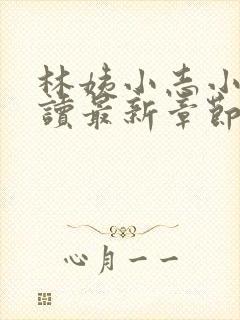 林姨小志小
讀最新章節
心月一一